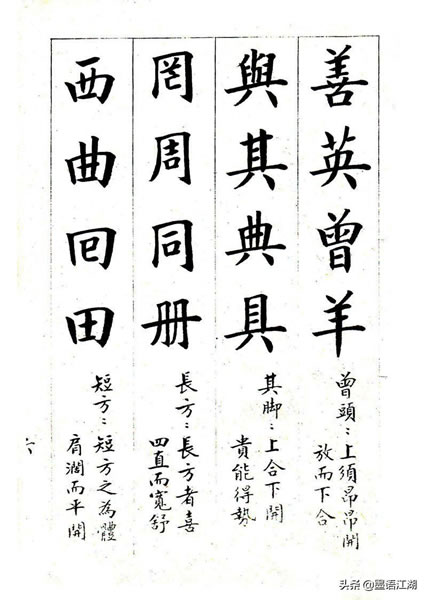 善英曾羊
曾頭：上須昂昂開
放而下合
與其典具
其脚：上合下開
貴能得勢
罔周同册
長方：長方者喜
四直而寬舒
西曲回田
短方：短方之為體
肩濶而平開
六
头条 @墨语江湖